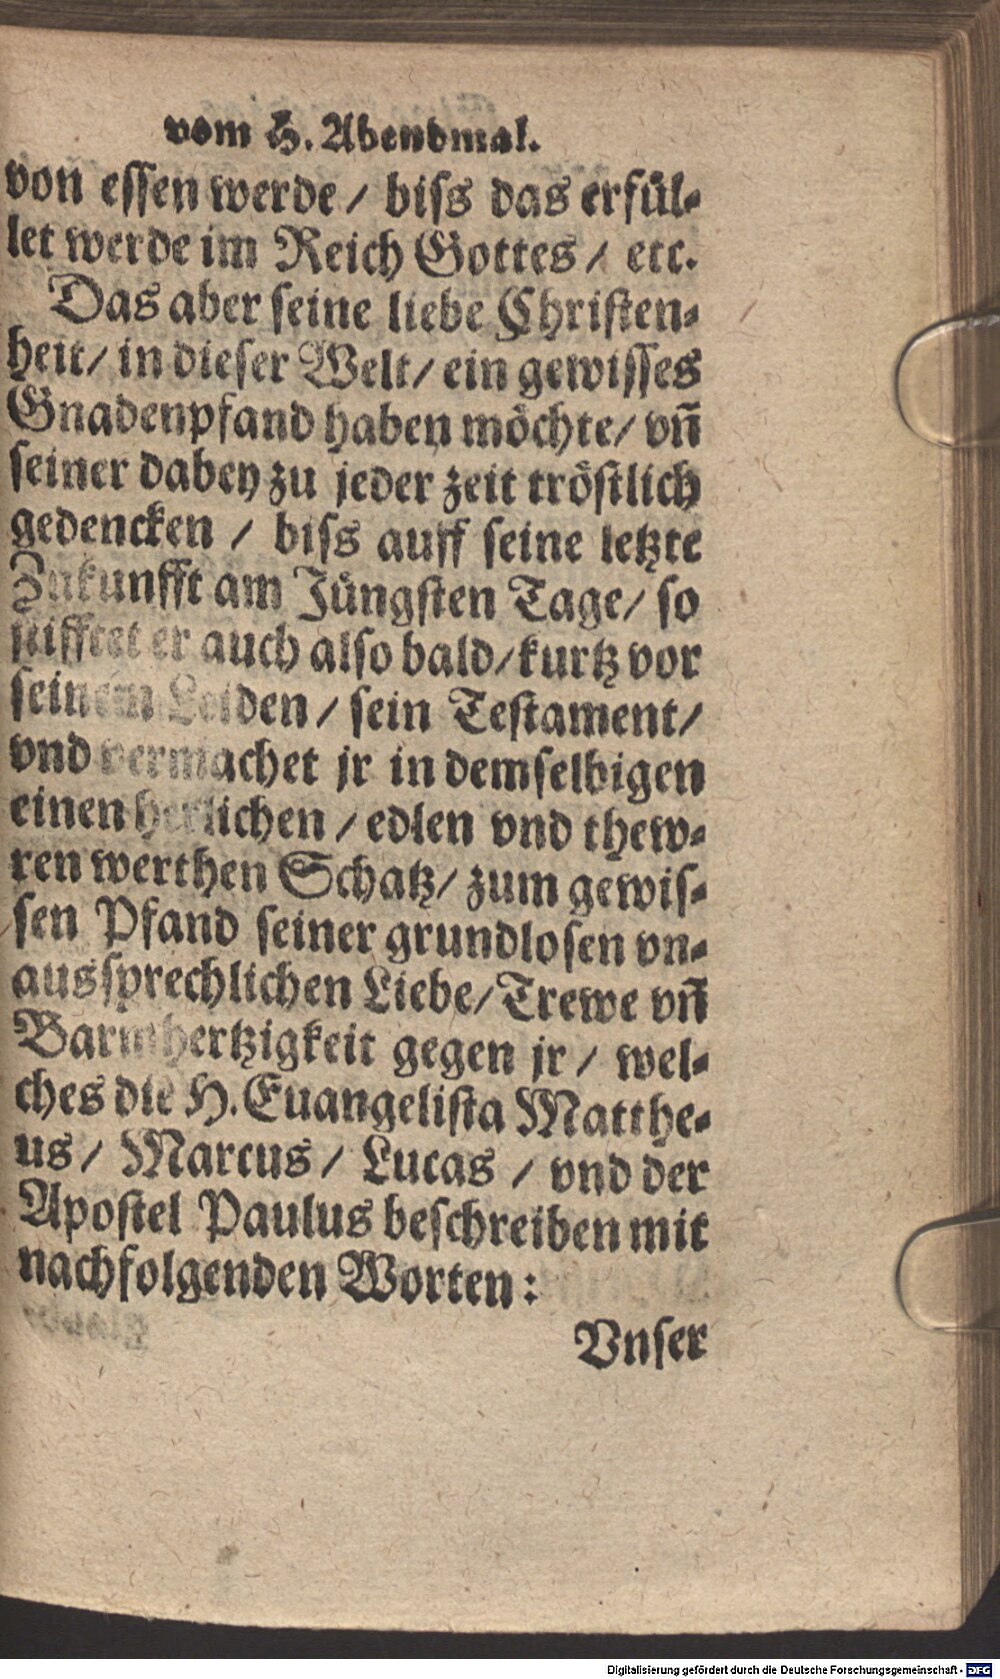 vom H. Abendmal.
von essen werde / biss das erfül-
let werde im Reich Gottes / etc.
Das aber seine liebe Christen-
heit / in dieser Welt / ein gewisses
Gnadenpfand haben möchte / vn̄
seiner dabey zu jeder zeit tröstlich
gedencken / biss auff seine letzte
Zukunfft am Jüngsten Tage / so
stifftet er auch also bald / kurtz vor
seinem Leiden / sein Testament /
vnd vermachet jr in demselbigen
einen herlichen / edlen vnd thew-
ren werthen Schatz / zum gewis-
sen Pfand seiner grundlosen vn-
aussprechlichen Liebe / Trewe vn̄
Barmhertzigkeit gegen jr / wel-
ches die H. Euangelista Matthe-
us / Marcus / Lucas / vnd der
Apostel Paulus beschreiben mit
nachfolgenden Worten :
Vnser
Digitalisierung gefördert durch die Deutsche Forschungsgemeinschaft - DFG